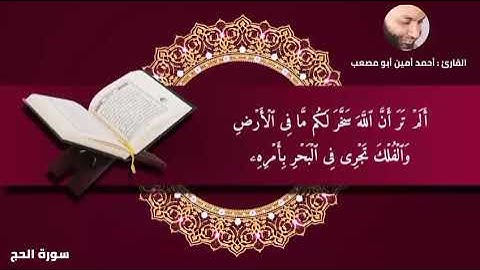 القارئ : أحمد أمين أبو مصعب
أَلَمْ تَرَ أَنَّ ٱللَّهَ سَخَّرَ لَكُم مَّا فِى ٱلْأَرْضِ
وَٱلْفُلْكَ تَجْرِى فِى ٱلْبَحْرِ بِأَمْرِهِۦ
سورة الحج